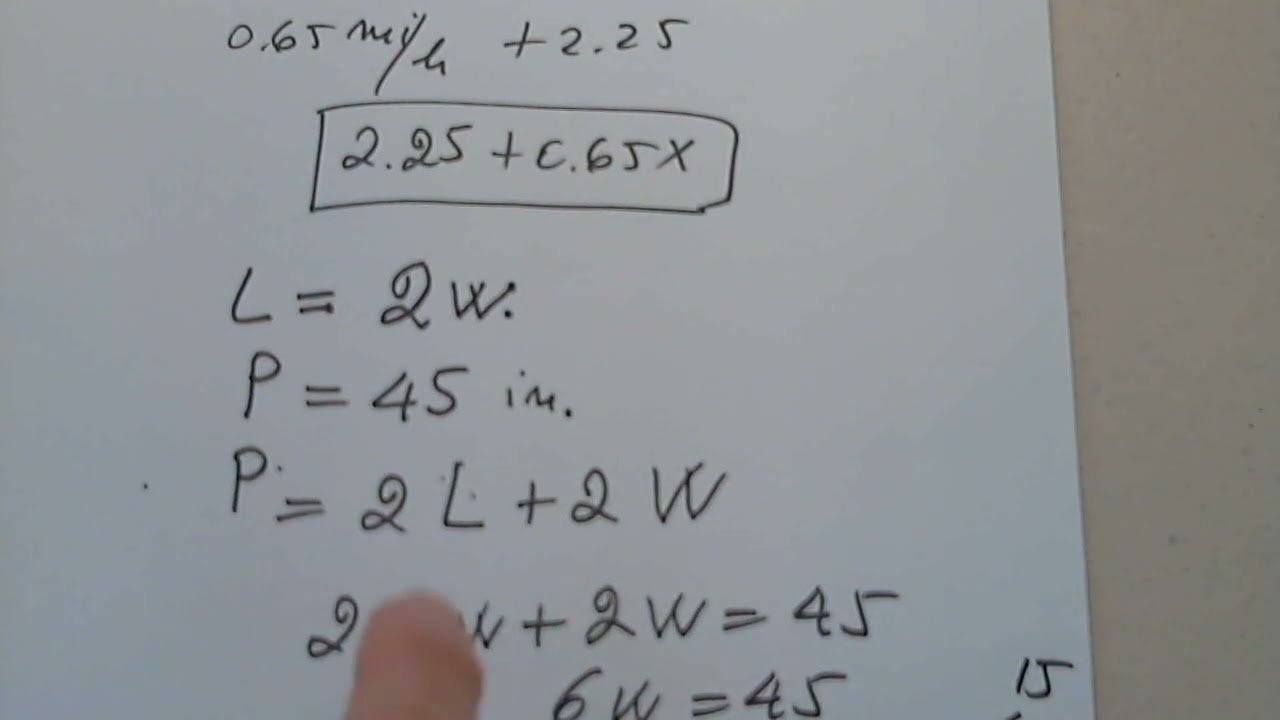 0.65 mi/h +2.25
2.25 + 0.65x
L = 2w.
P = 45 in.
P = 2L + 2W
2 w + 2W = 45
6w = 45
15